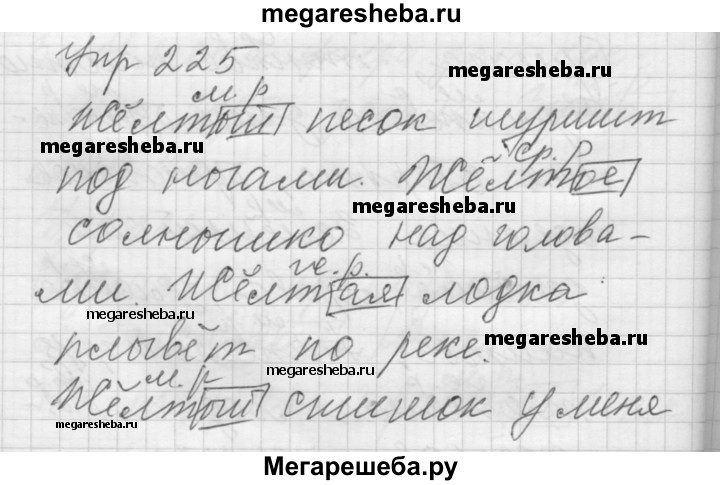 megaresheba.ru
Упр 225
megaresheba.ru
м р
Жёлтый песок шуршит
megaresheba.ru
ср. р
под ногами. Жёлтое
megaresheba.ru
солнышко над голова-
же. р.
ми. Жёлтая лодка
megaresheba.ru
megaresheba.ru
плывёт по реке.
megaresheba.ru
м. р
Жёлтый снишок у меня
megaresheba.ru
megaresheba.ru
Мегарешеба.ру